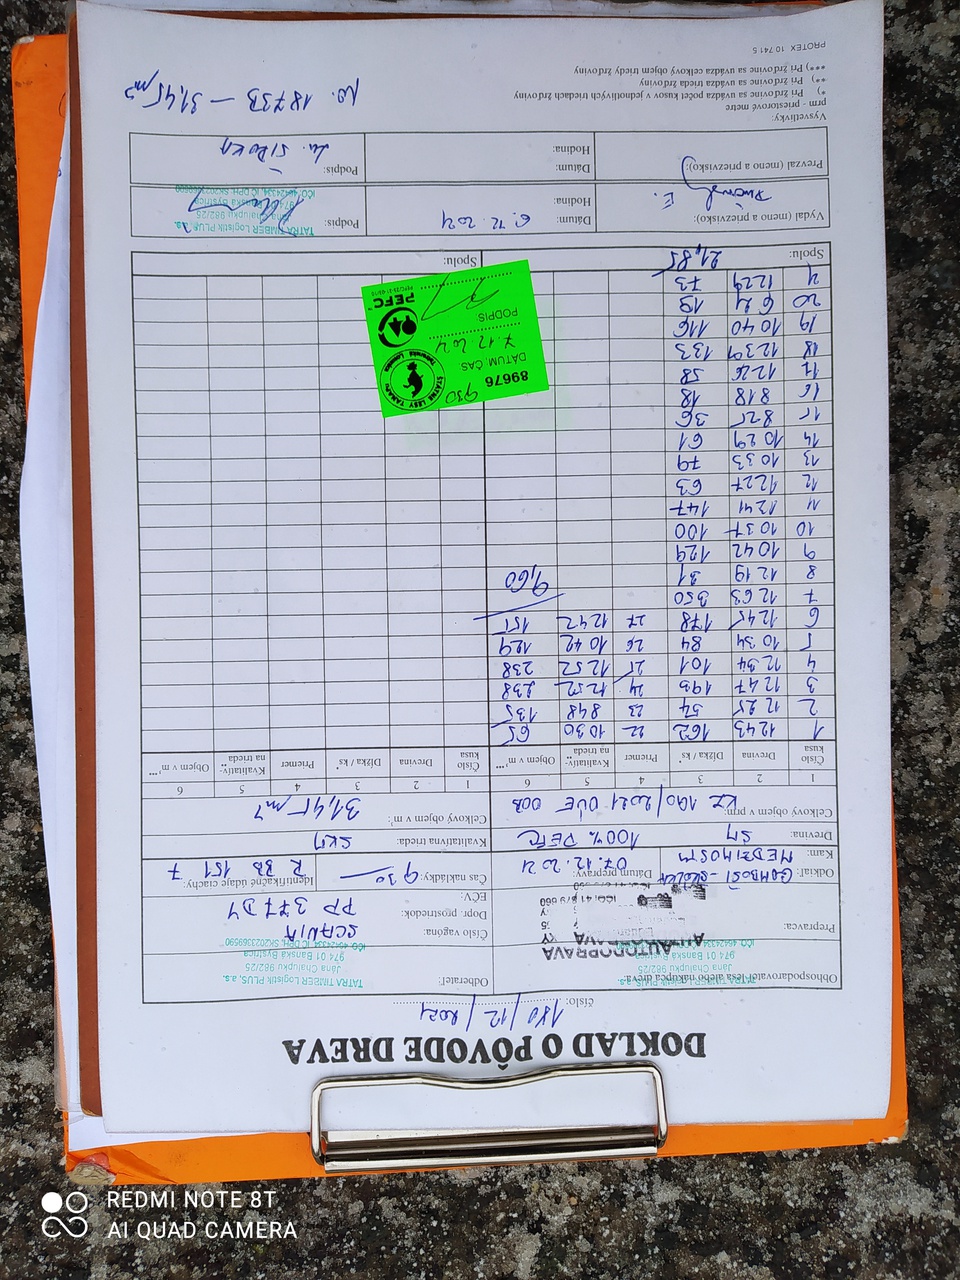 DOKLAD O PÔVODE DREVA
číslo: 180/12/2021
Obhospodarovateľ lesa alebo nákupca dreva:
TATRA TIMBER Logistik PLUS, a.s.
Jána Chalupku 982/25
974 01 Banská Bystrica
Odberateľ:
TATRA TIMBER Logistik PLUS, a.s.
Jána Chalupku 982/25
974 01 Banská Bystrica
IČO: 46424334, IČ DPH: SK2023369590
Prepravca: AUTODOPRAVA
Číslo vagóna: SCANIA
Dopr. prostriedok:
EČV: PP 377DY
Odkiaľ: GOMBOŠ-SKOLKA
Kam: MEDZIMOSTM
Dátum prepravy: 07.12.2021
Čas nakládky: 930
Identifikačné údaje ciachy: R BB 151 7
Drevina: SM 100% PEFC
Kvalitatívna trieda: SKM
Celkový objem v prm: KZ 190/2021 OÚE 003
Celkový objem v m³: 31,45 m³
1 2 3 4 5 6 1 2 3 4 5 6
Číslo kusa Drevina Dĺžka / ks* Priemer Kvalitatív- na trieda** Objem v m³,*** Číslo kusa Drevina Dĺžka / ks* Priemer Kvalitatív- na trieda** Objem v m³,***
1 1243 162 22 1030 65
2 1225 54 23 848 135
3 1247 193 24 1252 238
4 1234 101 25 1252 238
5 1034 84 26 1042 129
6 1245 178 27 1242 151
7 1263 350
8 1219 31 9,60
9 1042 129
10 1037 100
11 1241 147
12 1227 63
13 1033 79
14 1029 61
15 825 36
16 818 18
17 1226 58
18 1239 133
19 1040 116
20 621 19
21 1229 73
Spolu: 21,85 Spolu:
89676
DÁTUM: ČAS 930
7.12.2021
PODPIS:
ŠTÁTNE LESY TANAPu
Tatranská Lomnica
PEFC™
Vydal (meno a priezvisko): E.
Dátum: 6.12.2021
Hodina:
Podpis:
TATRA TIMBER Logistik PLUS, a.s.
Jána Chalupku 982/25
974 01 Banská Bystrica
IČO: 46424334, IČ DPH: SK2023369590
Prevzal (meno a priezvisko):
Dátum:
Hodina:
Podpis: ŠIROKÁ
Vysvetlivky:
prm - priestorové metre
*) Pri žrďovine sa uvádza počet kusov v jednotlivých triedach žrďoviny
**) Pri žrďovine sa uvádza trieda žrďoviny
***) Pri žrďovine sa uvádza celkový objem triedy žrďoviny
No. 1873B – 31,45 m³
PROTEX 10 741 5
REDMI NOTE 8T
AI QUAD CAMERA